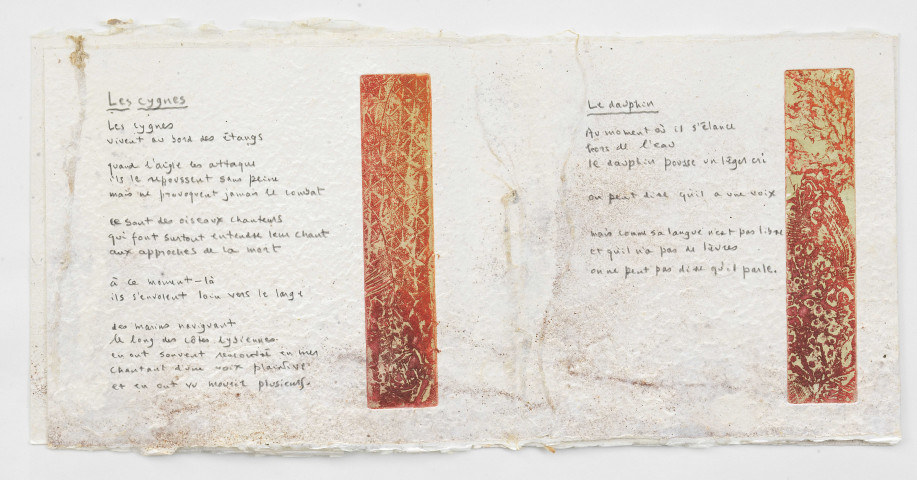 Les cygnes
Les cygnes
vivent au bord des étangs
quand l'aigle les attaque
ils le repoussent sans peine
mais ne provoquent jamais le combat
ce sont des oiseaux chanteurs
qui font surtout entendre leur chant
aux approches de la mort
à ce moment-là
ils s'envolent loin vers le large
des marins naviguant
le long des côtes lydiennes
en ont souvent rencontré en mer
chantant d'une voix plaintive
et en ont vu mourir plusieurs.
Le dauphin
Au moment où il s'élance
hors de l'eau
le dauphin pousse un léger cri
on peut dire qu'il a une voix
mais comme sa langue n'est pas libre
et qu'il n'a pas de lèvres
on ne peut pas dire qu'il parle.